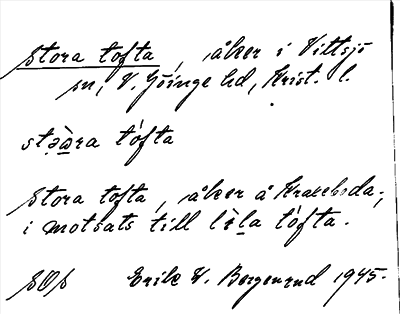 Stora tofta, åker i Vittsjö
sn, V. Göinge hd, Krist. l.
stə̀ω̲ra tófta
Stora tofta, åker å Krakeboda,
i motsats till lìla tófta.
SOS Erik W. Borgenrud 1945.